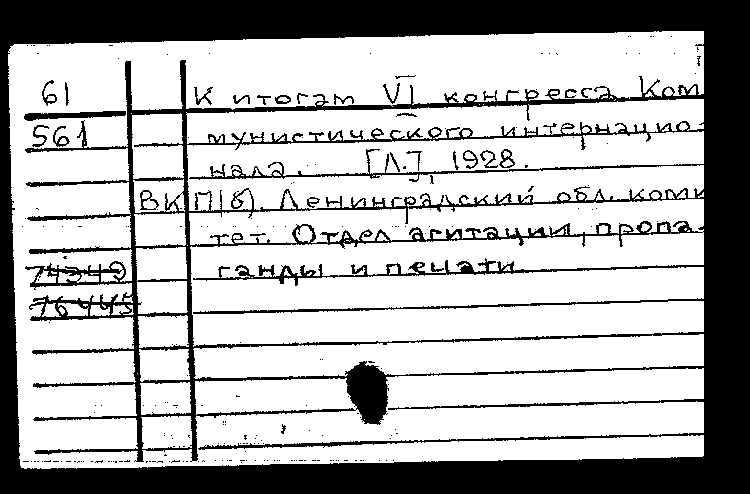 61 К итогам VI конгресса Ком
561 мунистического интернацио-
нала. [Л.], 1928.
ВКП(б). Ленинградский обл. коми
тет. Отдел агитации, пропа-
74349 ганды и печати.
76445